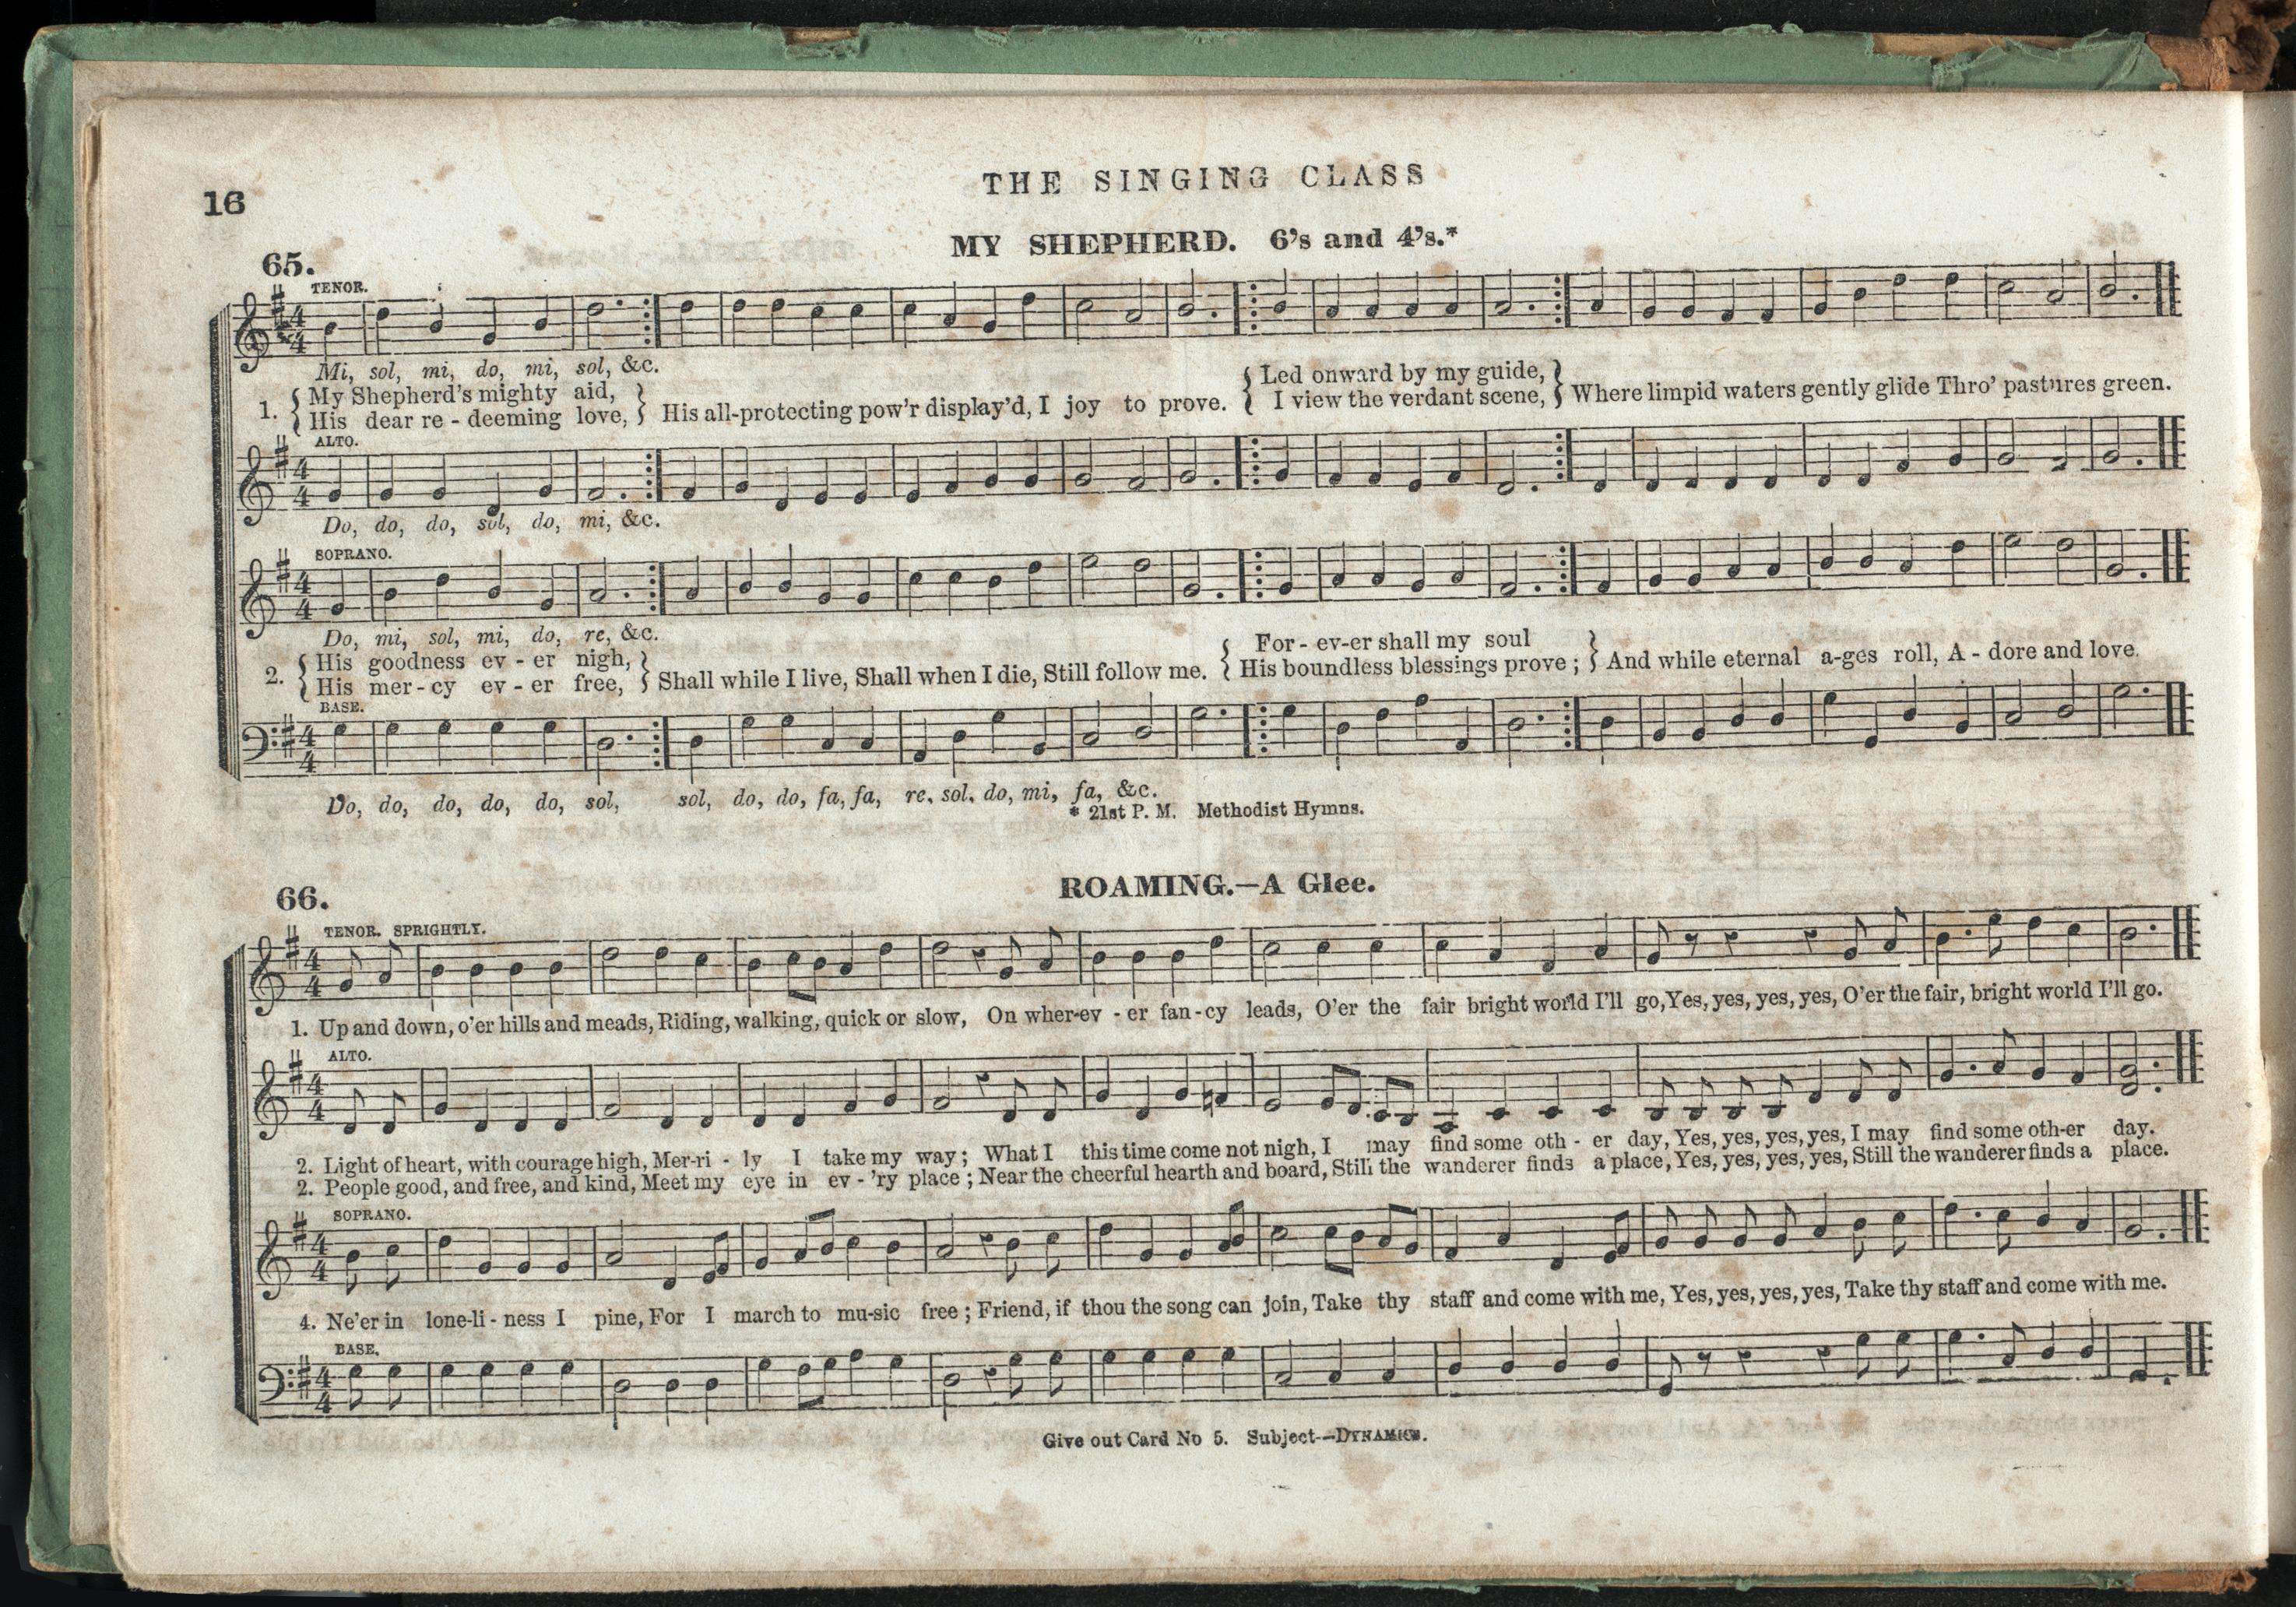 16
THE SINGING CLASS
MY SHEPHERD. 6's and 4's.*
65.
TENOR.
Mi, sol, mi, do, mi, sol, &c.
1. { My Shepherd's mighty aid, } His all-protecting pow'r display'd, I joy to prove. { Led onward by my guide, } Where limpid waters gently glide Thro' pastures green.
{ His dear re - deeming love, } { I view the verdant scene, }
ALTO.
Do, do, do, sol, do, mi, &c.
SOPRANO.
Do, mi, sol, mi, do, re, &c.
2. { His goodness ev - er nigh, } Shall while I live, Shall when I die, Still follow me. { For - ev-er shall my soul } And while eternal a-ges roll, A - dore and love.
{ His mer - cy ev - er free, } { His boundless blessings prove ; }
BASE.
Do, do, do, do, do, sol, sol, do, do, fa, fa, re, sol, do, mi, fa, &c.
* 21st P. M. Methodist Hymns.
ROAMING.—A Glee.
66.
TENOR. SPRIGHTLY.
1. Up and down, o'er hills and meads, Riding, walking, quick or slow, On wher-ev - er fan - cy leads, O'er the fair bright world I'll go, Yes, yes, yes, yes, O'er the fair, bright world I'll go.
ALTO.
2. Light of heart, with courage high, Mer-ri - ly I take my way ; What I this time come not nigh, I may find some oth - er day, Yes, yes, yes, yes, I may find some oth-er day.
2. People good, and free, and kind, Meet my eye in ev - 'ry place ; Near the cheerful hearth and board, Still the wanderer finds a place, Yes, yes, yes, yes, Still the wanderer finds a place.
SOPRANO.
4. Ne'er in lone-li - ness I pine, For I march to mu-sic free ; Friend, if thou the song can join, Take thy staff and come with me, Yes, yes, yes, yes, Take thy staff and come with me.
BASE.
Give out Card No 5. Subject--DYNAMICS.